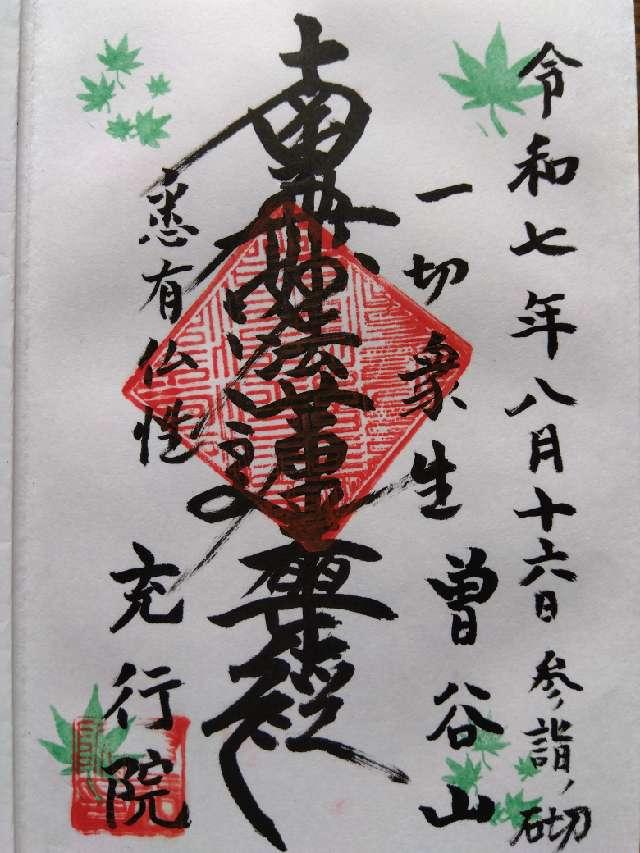 令和七年八月十六日 参詣ノ砌
一切衆生
曽谷山
南無妙法蓮華経
悉有仏性
充行院